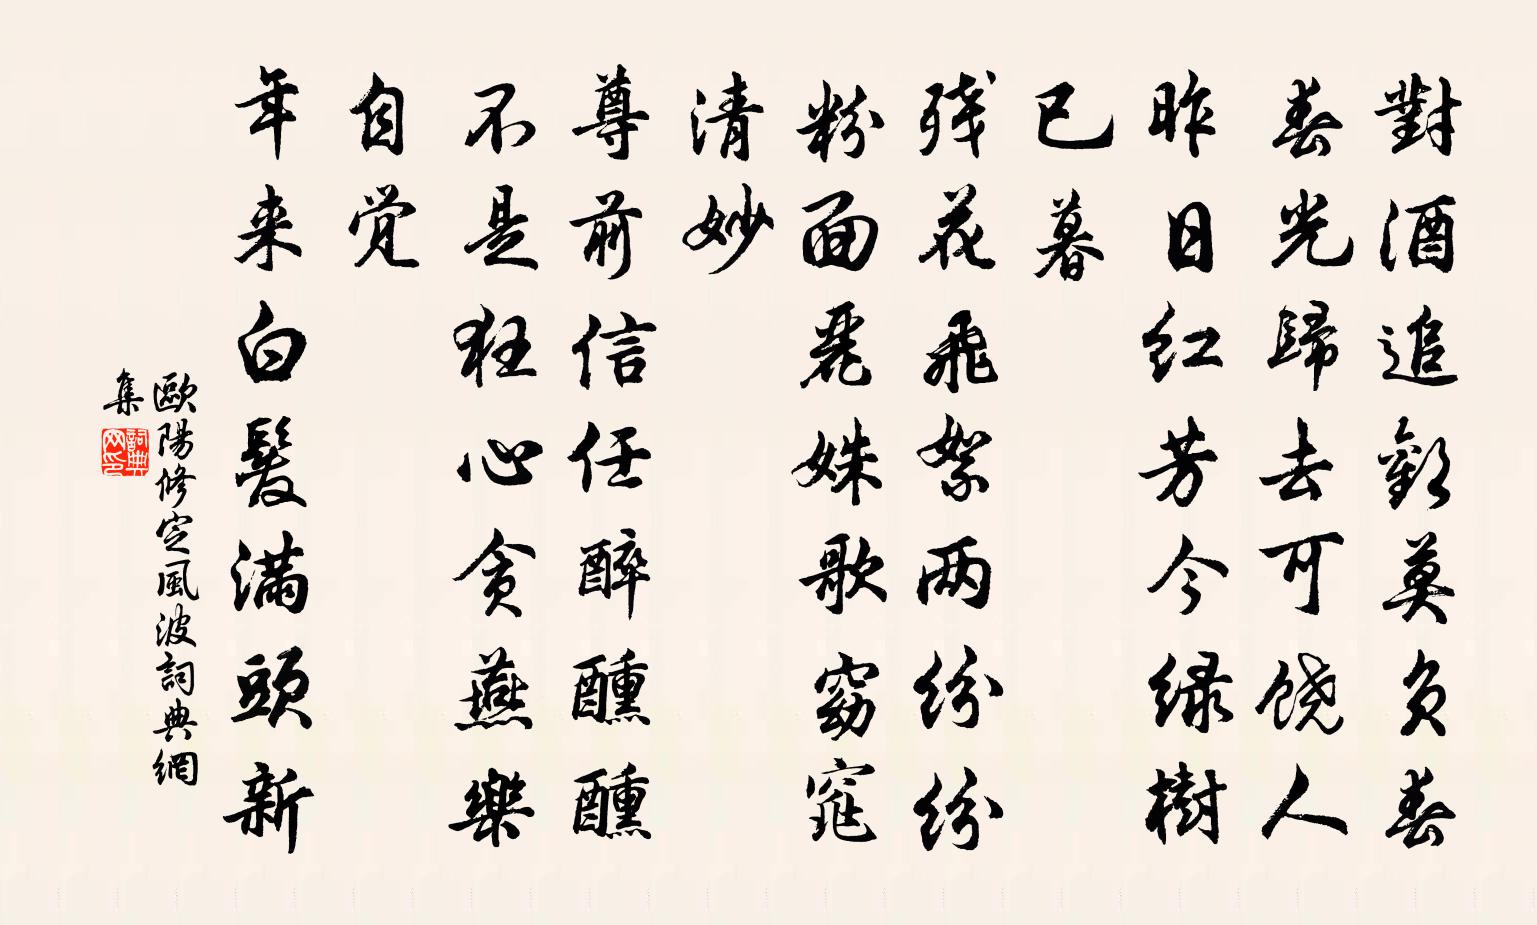 對酒追歡莫负春
春光歸去可饶人
昨日红芳今绿樹
已暮
残花飛絮两纷纷
粉面麗姝歌窈窕
清妙
尊前信任醉醺醺
不是狂心贪燕樂
自觉
年来白髮满頭新
歐陽修定風波詞典網
集
詞典网印